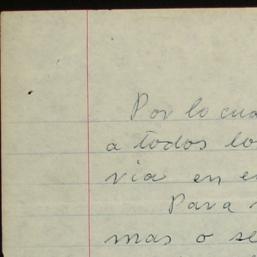 Por lo cua
a todos lo
via en e
Para
mas o se